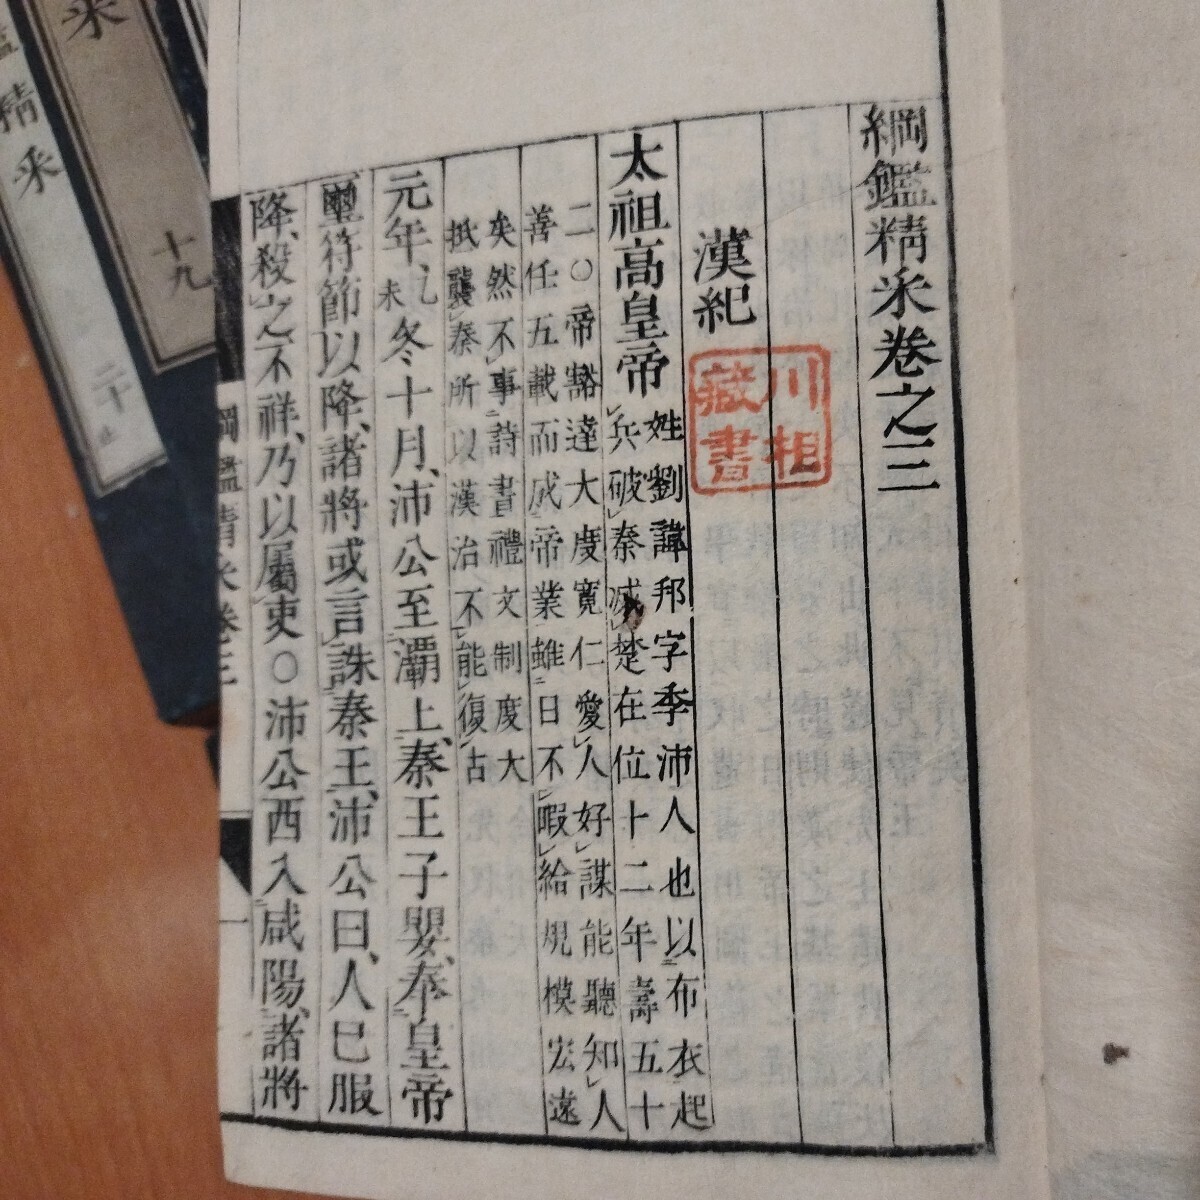 綱鑑精采卷之三
漢紀
川相
藏書
太祖高皇帝
姓劉諱邦字季沛人也以布衣起
兵破秦滅楚在位十二年壽五十
二○帝豁達大度寬仁愛人好謀能聽知人
善任五載而成帝業雖日不暇給規模宏遠
矣然不事詩書禮文制度大
抵襲秦所以漢治不能復古
元年、乙未冬十月、沛公至灞上、秦王子嬰、奉皇帝
璽符節以降、諸將或言誅秦王、沛公曰、人已服
降、殺之不祥、乃以屬吏○沛公西入咸陽、諸將
綱鑑精采卷三
一
采
十九
鑑精采
二十止